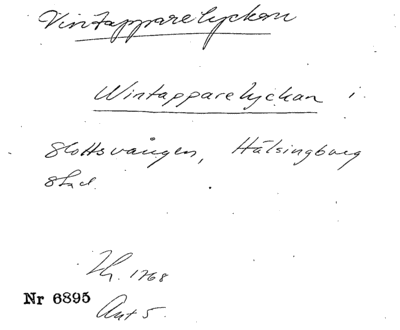 Vintapparelyckan
Wintapparelyckan i
Slottsvången, Hälsingborg
stad.
1768
Nr 6895
Ant 5.